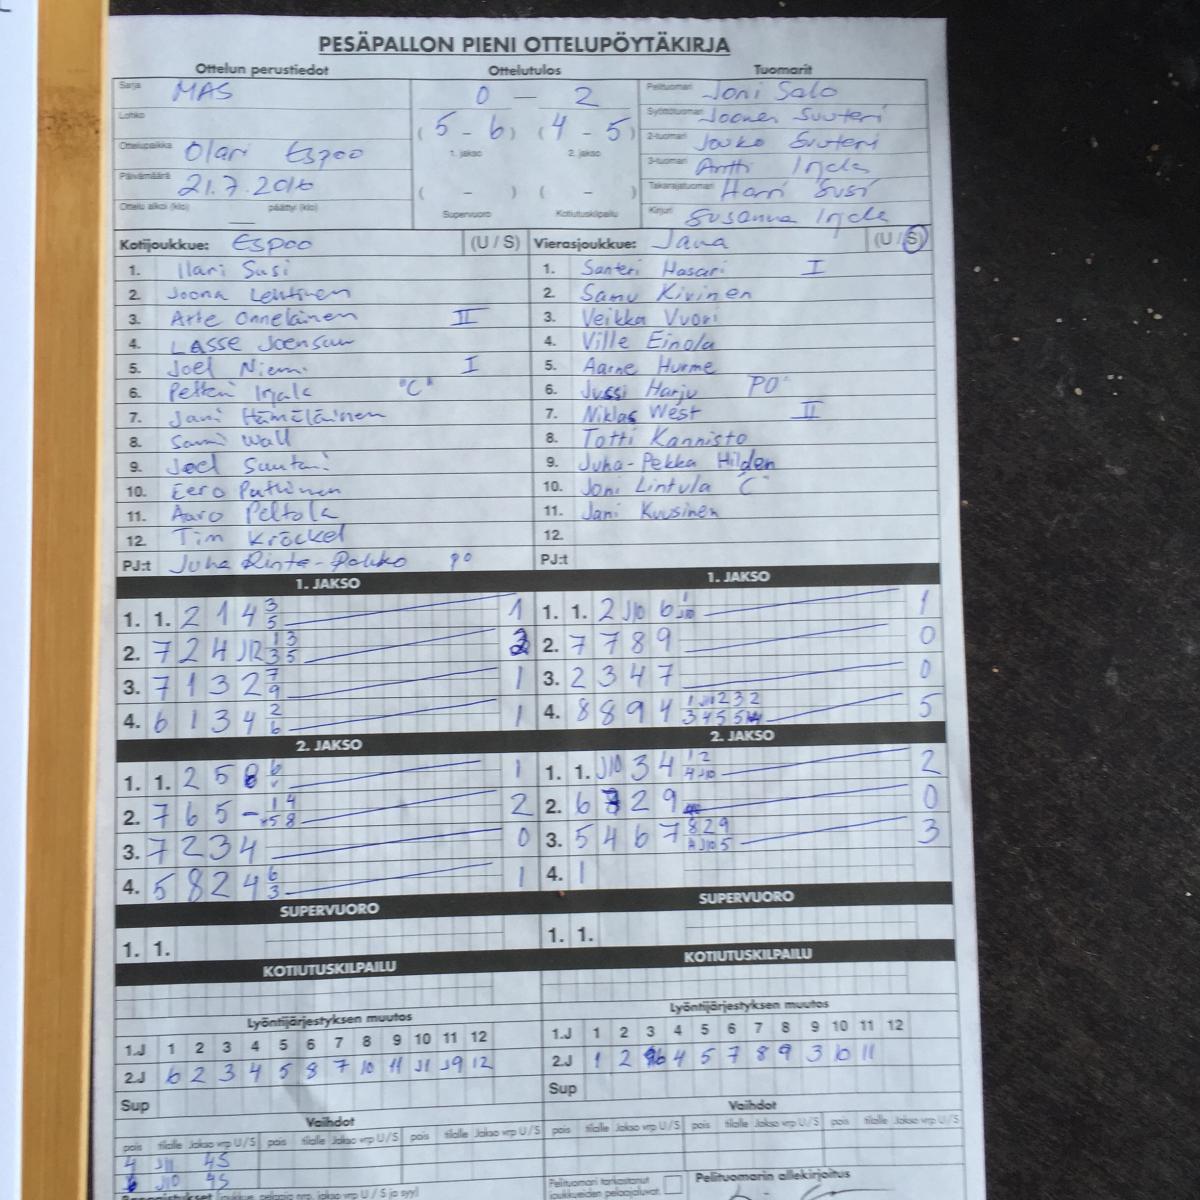 PESÄPALLON PIENI OTTELUPÖYTÄKIRJA
Ottelun perustiedot Ottelutulos Tuomarit
Sarja MAS 0 – 2 Pelituomari Joni Salo
Lohko (5 - 6) (4 - 5) Syöttötuomari Joonas Suuteri
1. jakso 2. jakso 2-tuomari Jouko Suuteri
Ottelupaikka Olari Espoo 3-tuomari Antti
Päivämäärä 21.7.2016 ( - ) ( - ) Takarajatuomari Harri Susi
Ottelu alkoi (klo) päättyi (klo) Supervuoro Kotiutuskilpailu Kirjuri Susanna
Kotijoukkue: Espoo (U / S) Vierasjoukkue: Jana (U / S)
1. Ilari Susi 1. Santeri Hasari I
2. Joona Lehtinen 2. Samu Kivinen
3. Arte Onnelainen II 3. Veikka Vuori
4. LASSE Joensuu 4. Ville Einola
5. Joel Niemi I 5. Aarne Hurme
6. Petteri "C" 6. Jussi Harju PO
7. Jani Hämäläinen 7. Niklas West II
8. Sami Wall 8. Totti Kannisto
9. Joel 9. Juha-Pekka Hilden
10. Eero Puttinen 10. Joni Lintula C
11. Aaro Peltola 11. Jani Kuusinen
12. Tim Kröckel 12.
PJ:t Juha Rinta-Pokko PO PJ:t
1. JAKSO 1. JAKSO
1. 1. 2 1 4 3 5 1 1. 1. 2 J10 6 1 J10 1
2. 7 2 4 J12 1 3 3 5 2. 7 7 8 9 0
3. 7 1 3 2 7 9 1 3. 2 3 4 7 0
4. 6 1 3 4 2 6 1 4. 8 8 9 4 5
2. JAKSO 2. JAKSO
1. 1. 2 5 8 6 1 1. 1. J10 3 4 1 2 4 J10 2
2. 7 6 5 - 1 4 5 8 2 2. 6 2 9 0
3. 7 2 3 4 0 3. 5 4 6 7 8 2 9 J10 5 3
4. 5 8 2 4 6 3 1 4. 1
SUPERVUORO SUPERVUORO
1. 1. 1. 1.
KOTIUTUSKILPAILU KOTIUTUSKILPAILU
Lyöntijärjestyksen muutos Lyöntijärjestyksen muutos
1.J 1 2 3 4 5 6 7 8 9 10 11 12 1.J 1 2 3 4 5 6 7 8 9 10 11 12
2.J 6 2 3 4 5 8 7 10 11 J1 J9 12 2.J 1 2 4 5 7 8 9 3 10 11
Sup Sup
Vaihdot Vaihdot
pois tilalle Jakso vrp U/S pois tilalle Jakso vrp U/S pois tilalle Jakso vrp U/S pois tilalle Jakso vrp U/S pois tilalle Jakso vrp U/S pois tilalle Jakso vrp U/S
4 J11 4S
J10 4S
Pelituomari tarkastanut joukkueiden pelaajaluvat. Pelituomarin allekirjoitus